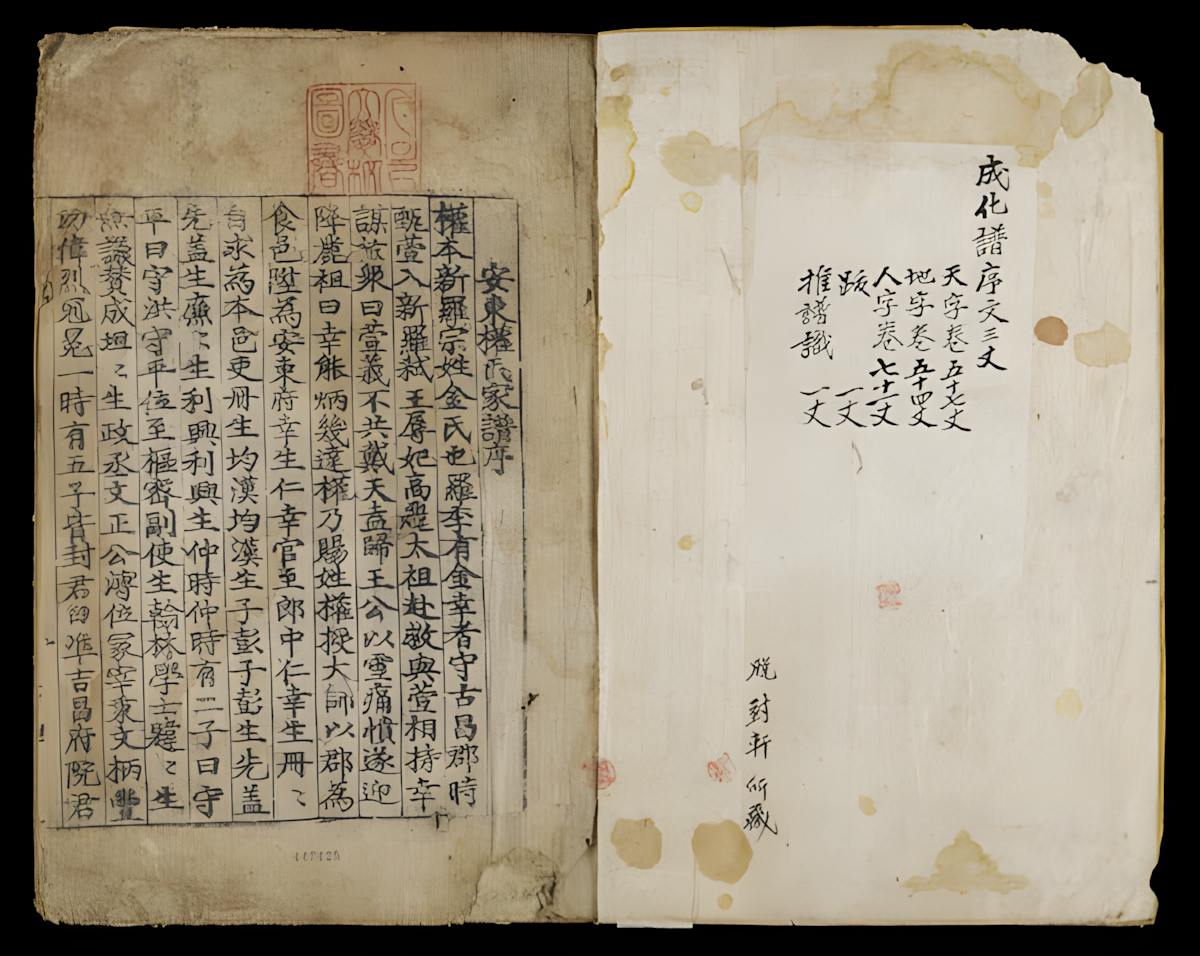 成化譜序文三丈
天字卷 五十七丈
地字卷 五十四丈
人字卷 七十一丈
跋 一丈
推譜識 一丈
脫封軒所藏
安東權氏家譜序
權本新羅宗姓金氏也羅季有金幸者守古昌郡時
甄萱入新羅弑王辱妃高麗太祖赴救與萱相持幸
謀於衆曰萱義不共戴天盍歸王公以雪痛憤遂迎
降麗祖曰幸能炳幾達權乃賜姓權授大師以郡為
食邑陞為安東府幸生仁幸官至郎中仁幸生冊〻
自求為本邑吏冊生均漢均漢生子彭子彭生先盖
先盖生廉〻生利興利興生仲時仲時有二子曰守
平曰守洪守平位至樞密副使生翰林學士韙〻生
無譏賛成坦〻生政丞文正公溥位冢宰秉文柄豐
功偉烈冠冕一時有五子皆封君曰準吉昌府院君